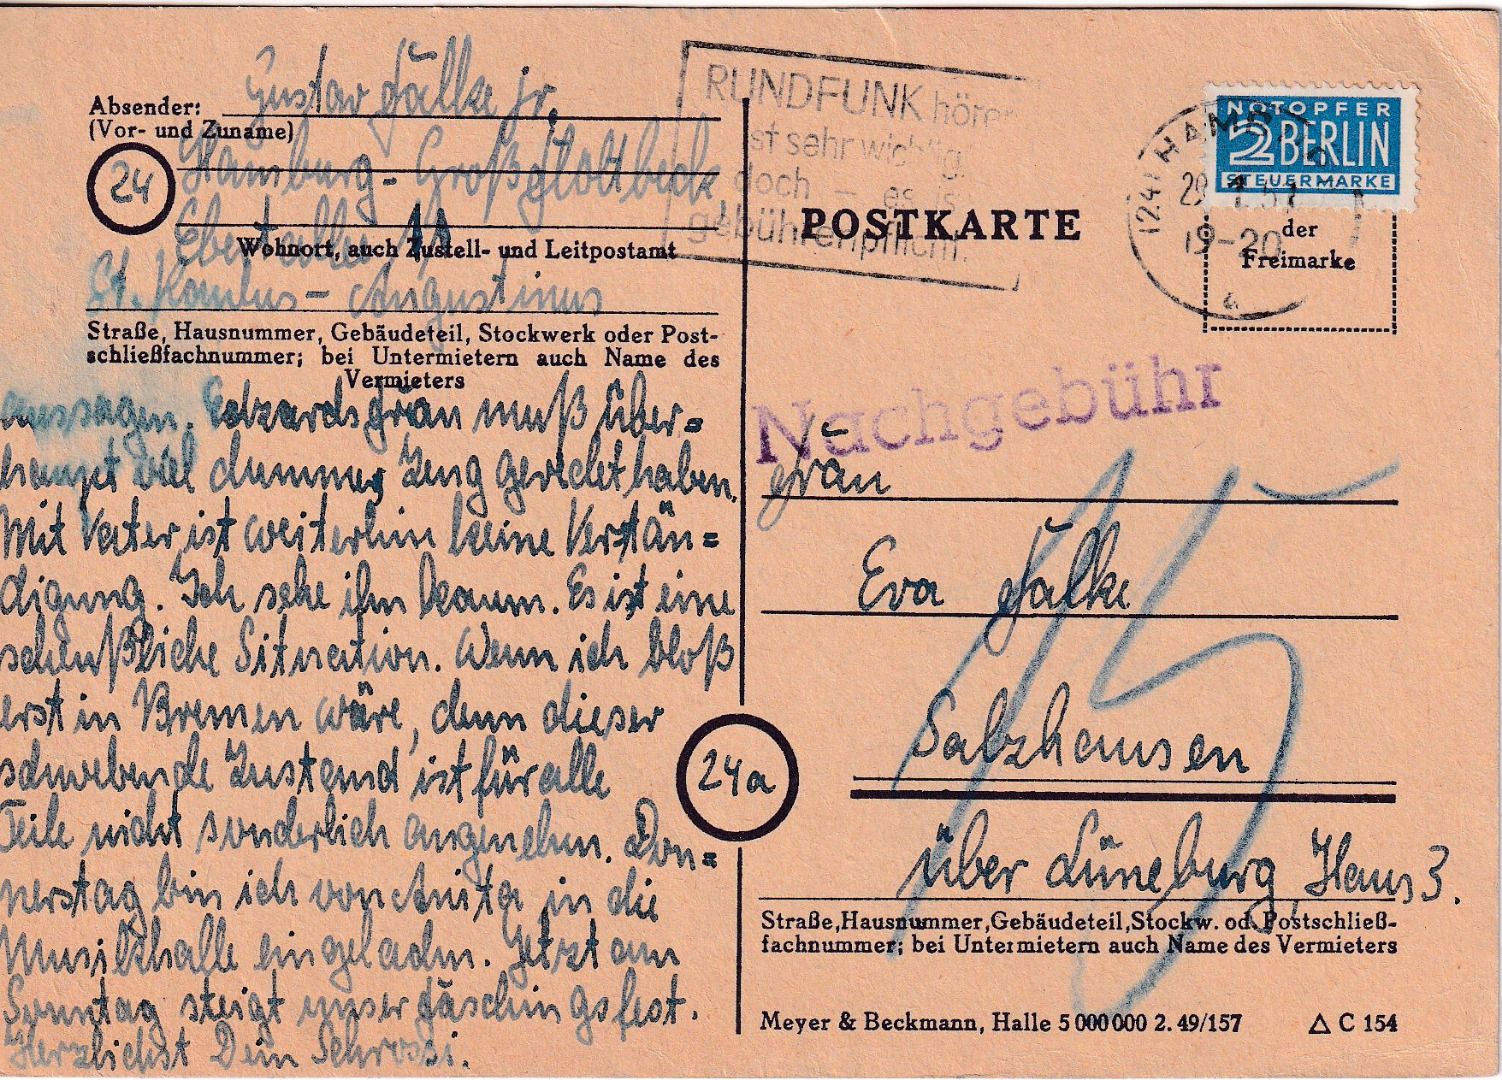 Absender: Gustav Fälke jr.
(Vor- und Zuname)
24 Hamburg-Großflottbeck,
Wohnort, auch Zustell- und Leitpostamt
St. Paulus - Augustinus
Straße, Hausnummer, Gebäudeteil, Stockwerk oder Post-
schließfachnummer; bei Untermietern auch Name des
Vermieters
aussagen. Edzardsfrau muß über=
haupt viel dummes Zeug geredet haben.
Mit Vater ist weiterhin keine Verstän=
digung. Ich sehe ihn kaum. Es ist eine
scheußliche Situation. Wenn ich bloß
erst in Bremen wäre, denn dieser
schwebende Zustand ist für alle
Teile nicht sonderlich angenehm. Don=
nerstag bin ich von Anita in die
Musikhalle eingeladen. Jetzt am
Sonntag steigt unser Faschingsfest.
Herzlichst Dein Schrossi.
RUNDFUNK hören
ist sehr wichtig,
doch - es ist
gebührenpflicht.
POSTKARTE
NOTOPFER
2 BERLIN
STEUERMARKE
(24) HAMB
19-20
a
der
Freimarke
Nachgebühr
15
Frau
Eva Fälke
24a
Salzhausen
über Lüneburg, Haus 3.
Straße, Hausnummer, Gebäudeteil, Stockw. od. Postschließ-
fachnummer; bei Untermietern auch Name des Vermieters
Meyer & Beckmann, Halle 5 000 000 2. 49/157 △ C 154